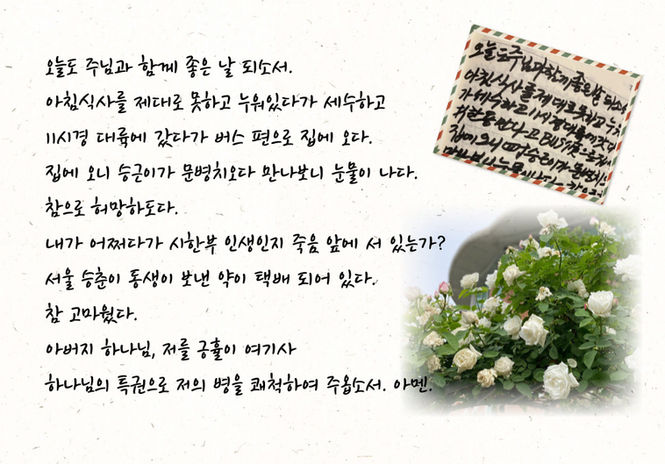 오늘도 주님과 함께 좋은 날 되소서.
아침식사를 제대로 못하고 누워있다가 세수하고
11시경 대륙에 갔다가 버스 편으로 집에 오다.
집에 오니 승근이가 문병치오다 만나보니 눈물이 나다.
참으로 허망하도다.
내가 어쩌다가 시한부 인생인지 죽음 앞에 서 있는가?
서울 승춘이 동생이 보낸 약이 택배 되어 있다.
참 고마웠다.
아버지 하나님, 저를 긍휼이 여기사
하나님의 특권으로 저의 병을 쾌척하여 주옵소서. 아멘.
오늘도 주님과 함께 좋은 날 되소서
아침식사를 제대로 못하고 누워